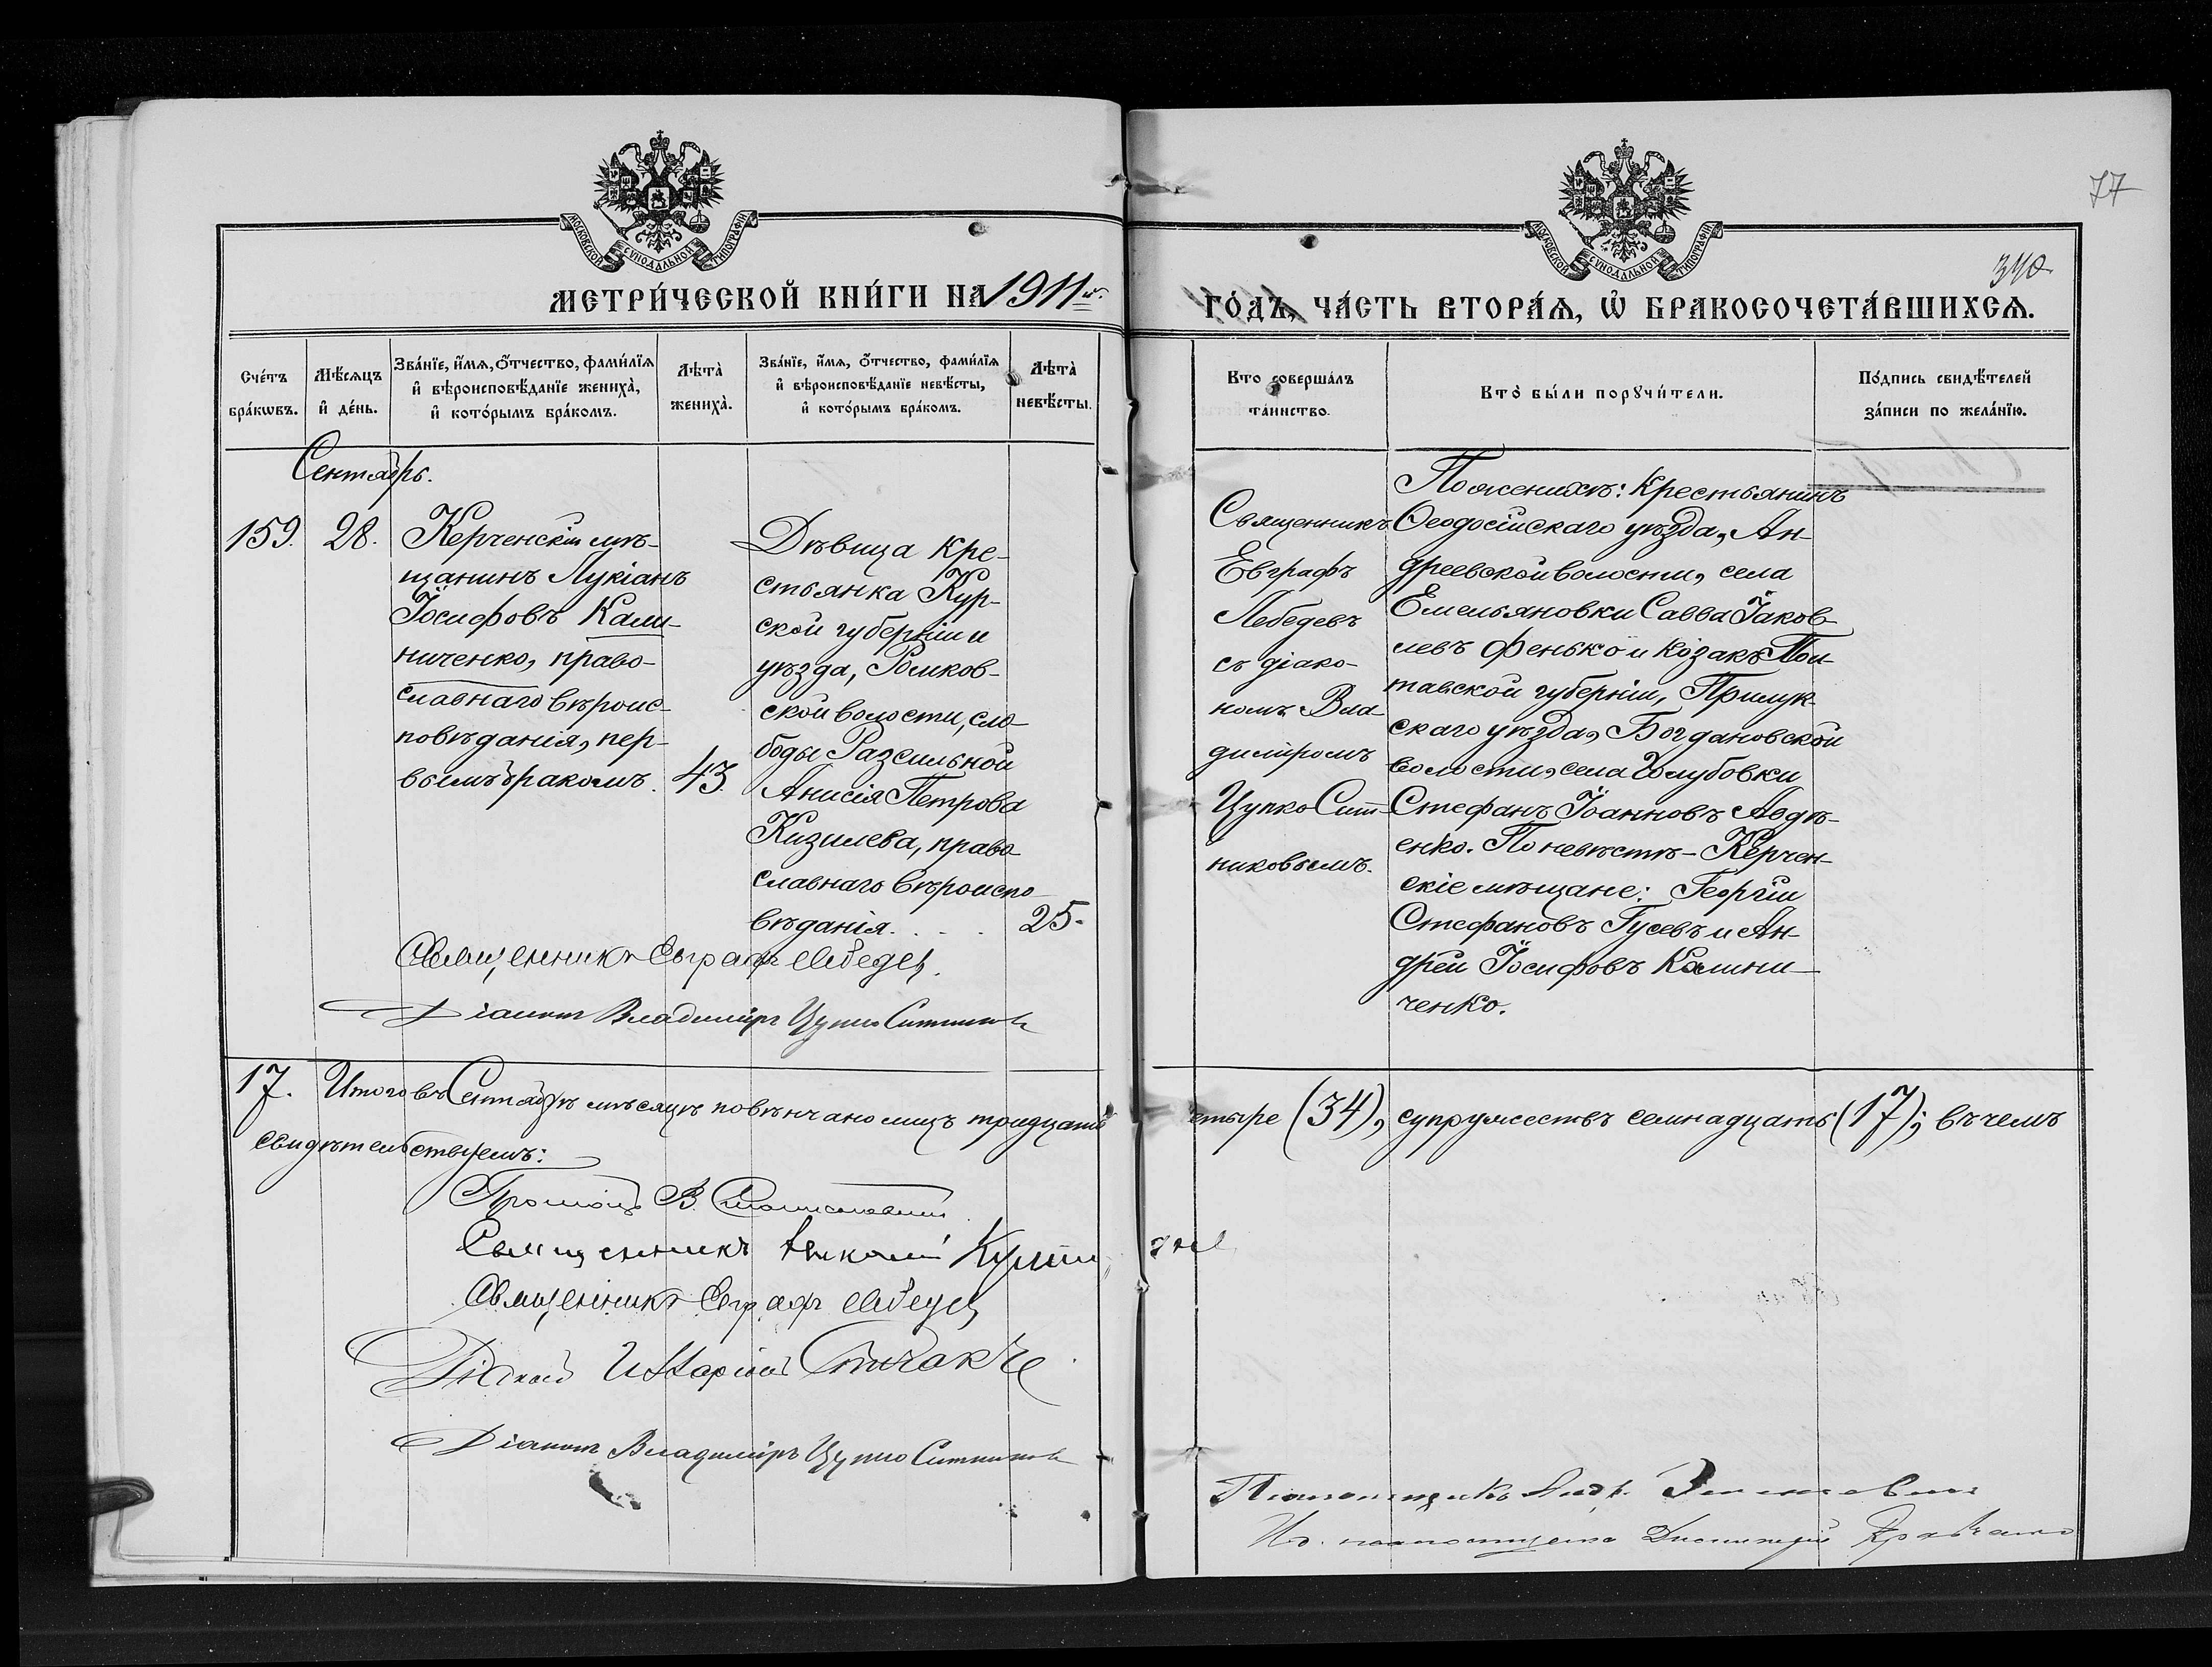 77
340
МОСКОВСКОЙ СѴНОДАЛЬНОЙ ТИПОГРАФІИ
МОСКОВСКОЙ СѴНОДАЛЬНОЙ ТИПОГРАФІИ
МЕТРИ́ЧЕСКОЙ КНИ́ГИ НА 1911 г.
ГО́ДЪ, ЧА́СТЬ ВТОРА́Ѧ, Ѽ БРАКОСОЧЕТА́ВШИХСѦ.
Сче́тъ бра́кѡвъ.
Мѣ́сѧцъ и҆ де́нь.
Зва́нїе, и҆́мѧ, ѻ҆́тчество, фами́лїѧ
и҆ вѣроисповѣ́данїе жениха̀,
и҆ кото́рымъ бра́комъ.
Лѣта̀ жениха̀.
Зва́нїе, и҆́мѧ, ѻ҆́тчество, фами́лїѧ
и҆ вѣроисповѣ́данїе невѣ́сты,
и҆ кото́рымъ бра́комъ.
Лѣта̀ невѣ́сты.
Кто соверша́лъ
та́инство.
Кто̀ бы́ли порꙋчи́тели.
По́дпись свидѣ́телей
за́писи по жела́нїю.
Сентябрь.
159.
28.
Керченскій мѣ-
щанинъ Лукіанъ
Іосифовъ Кали-
ниченко, право-
славнаго вѣроис-
повѣданія, пер-
вымъ бракомъ.
43.
Дѣвица кре-
стьянка Кур-
ской губерніи и
уѣзда, Рымков-
ской волости, сло-
боды Разсильной
Анисія Петрова
Кизилева, право-
славнаго вѣроиспо-
вѣданія....
25.
Священникъ
Евграфъ
Лебедевъ
съ діако-
номъ Вла-
диміромъ
Цупко Сит-
никовымъ.
По женихѣ: Крестьянинъ
Ѳеодосійскаго уѣзда, Ан-
дреевской волости, села
Емельяновки Савва Іаков-
левъ Фенько и козакъ Пол-
тавской губерніи, Прилук-
скаго уѣзда, Богдановской
волости, села Голубовки
Стефанъ Іоанновъ Авдѣ-
енко. По невѣстѣ - Керчен-
скіе мѣщане: Георгій
Стефановъ Гусевъ и Ан-
дрей Іосифовъ Калини-
ченко.
Священникъ Евграфъ Лебедевъ.
Діаконъ Владиміръ Цупко Ситниковъ
17. Итого въ Сентябрѣ мѣсяцѣ повѣнчано лицъ тридцать четыре (34), супружествъ семнадцать (17); въ чемъ
свидѣтельствуемъ:
Священникъ Николай
Священникъ Евграфъ Лебедевъ
Діаконъ Иларіонъ
Діаконъ Владиміръ Цупко Ситниковъ